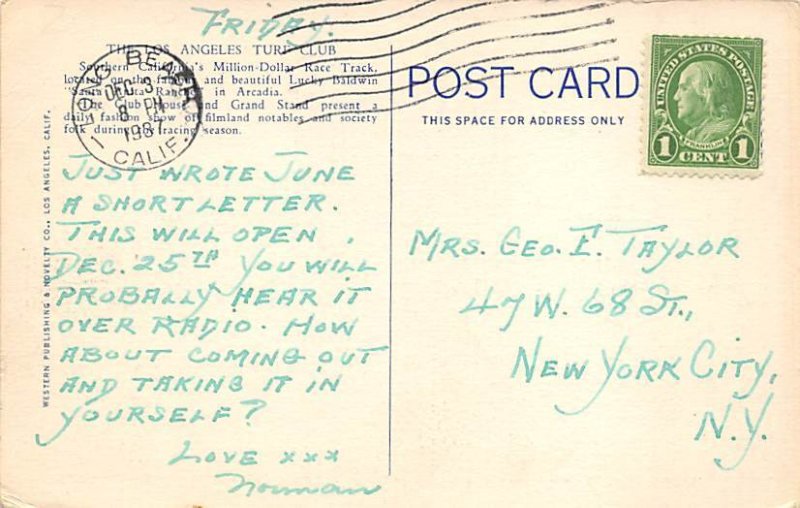 Friday.
THE LOS ANGELES TURF CLUB
Southern California's Million-Dollar Race Track,
located on the famous and beautiful Lucky Baldwin
"Santa Anita Rancho" in Arcadia.
The Club House and Grand Stand present a
daily fashion show of filmland notables and society
folk during the racing season.
LONG BEACH
DEC 3
8 PM
1937
CALIF.
JUST WROTE JUNE
A SHORT LETTER.
THIS WILL OPEN,
DEC. 25TH YOU WILL
PROBALLY HEAR IT
OVER RADIO. HOW
ABOUT COMING OUT
AND TAKING IT IN
YOURSELF?
LOVE xxx
Norman
WESTERN PUBLISHING & NOVELTY CO., LOS ANGELES, CALIF.
POST CARD
THIS SPACE FOR ADDRESS ONLY
UNITED STATES POSTAGE
FRANKLIN
1 CENT 1
MRS. GEO. E. TAYLOR
47 W. 68 ST.,
NEW YORK CITY,
N.Y.